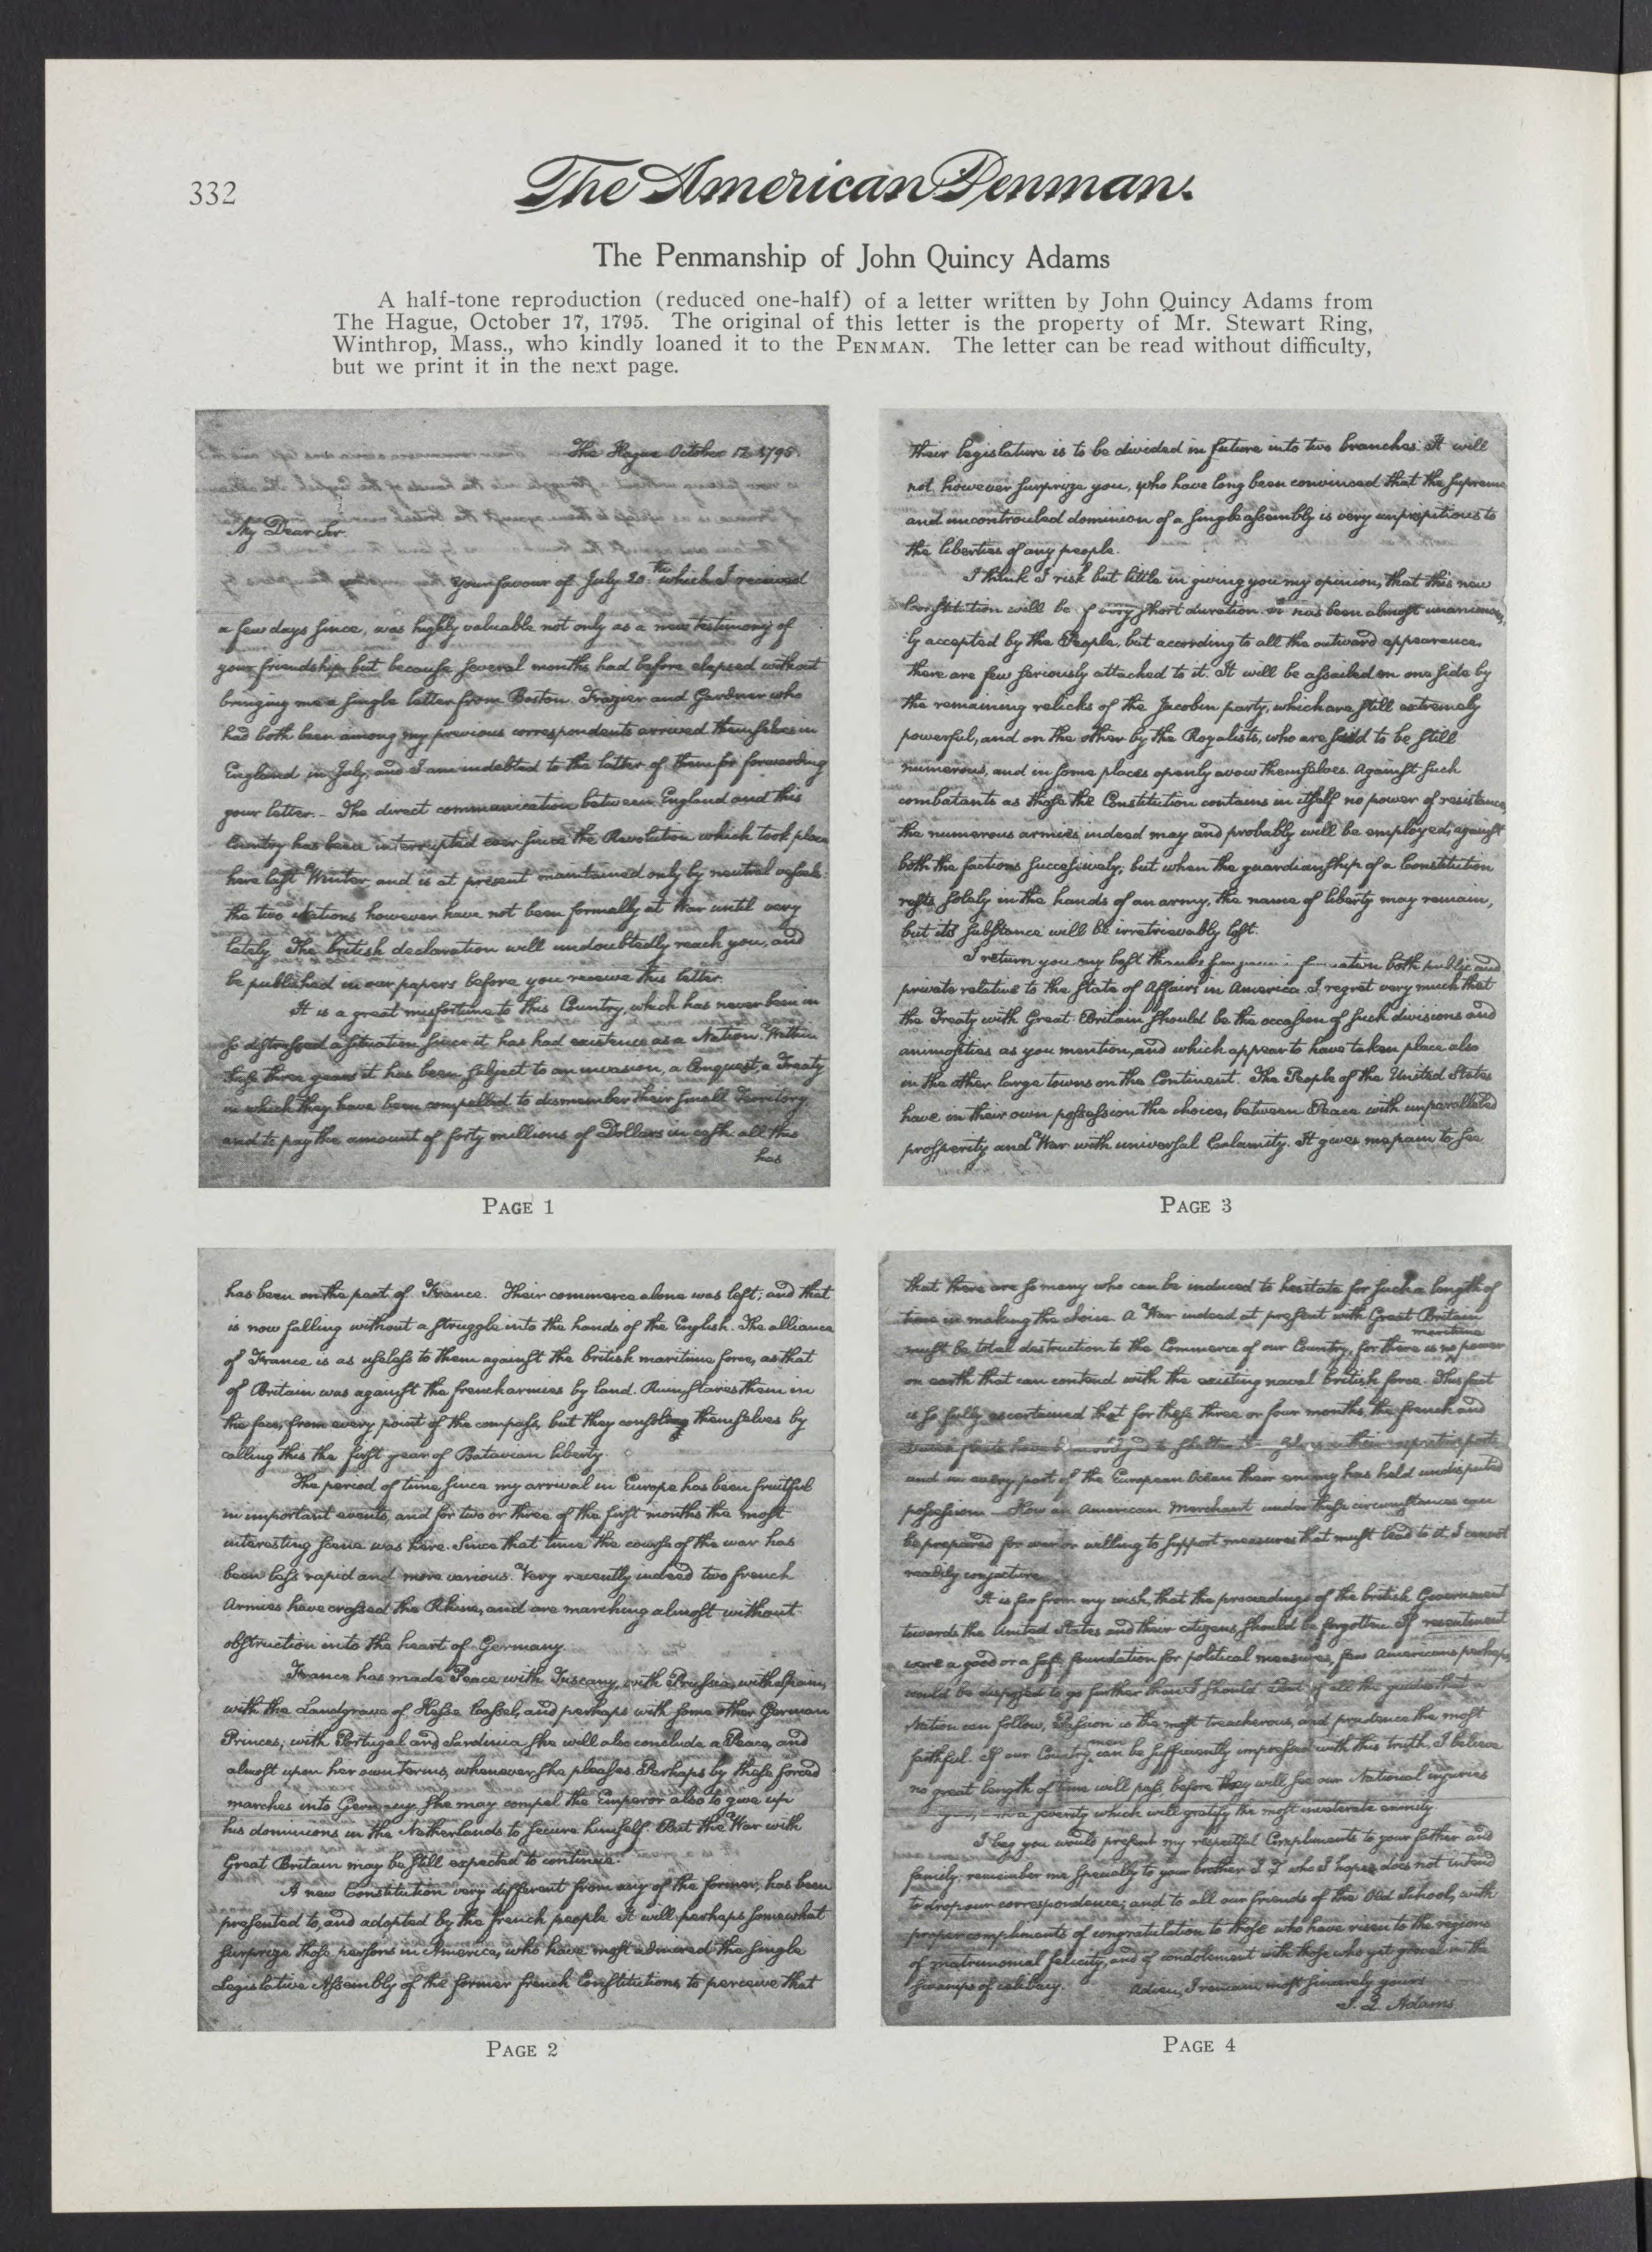 332
The American Penman.
The Penmanship of John Quincy Adams
A half-tone reproduction (reduced one-half) of a letter written by John Quincy Adams from
The Hague, October 17, 1795. The original of this letter is the property of Mr. Stewart Ring,
Winthrop, Mass., who kindly loaned it to the PENMAN. The letter can be read without difficulty,
but we print it in the next page.
The Hague October 17. 1795.
My Dear Sir.
Your favour of July 20.th which I received
a few days since, was highly valuable not only as a new testimony of
your friendship, but because several months had before elapsed without
bringing me a single letter from Boston. Frazier and Gardner who
had both been among my previous correspondents arrived themselves in
England in July, and I am indebted to the latter of them for forwarding
your letter. - The direct communication between England and this
Country has been interrupted ever since the Revolution which took place
here last Winter, and is at present maintained only by neutral vessels.
the two Nations however have not been formally at War until very
lately. The british declaration will undoubtedly reach you, and
be published in our papers before you receive this letter.
It is a great misfortune to this Country, which has never been in
so distressed a situation since it has had existence as a Nation. Within
these three years it has been subject to an invasion, a Conquest, a Treaty
in which they have been compelled to dismember their small Territory
and to pay the amount of forty millions of Dollars in cash. all this
has
PAGE 1
has been on the part of France. Their commerce alone was left; and that
is now falling without a struggle into the hands of the English. The alliance
of France is as useless to them against the british maritime force, as that
of Britain was against the french armies by land. Ruin stares them in
the face, from every point of the compass, but they themselves by
calling this the first year of Batavian liberty.
The period of time since my arrival in Europe has been fruitful
in important events, and for two or three of the first months the most
interesting scene was here. Since that time the course of the war has
been less rapid and more various. Very recently indeed two french
Armies have crossed the Rhine, and are marching almost without
obstruction into the heart of Germany.
France has made Peace with Tuscany, with Prussia, with Spain,
with the Landgrave of Hesse Cassel, and perhaps with some other German
Princes; with Portugal and Sardinia she will also conclude a Peace, and
almost upon her own terms, whenever she pleases. Perhaps by these forced
marches into Germany she may compel the Emperor also to give up
his dominions in the Netherlands to secure himself. But the War with
Great Britain may be still expected to continue.
A new Constitution very different from any of the former, has been
presented to, and adopted by the french people. It will perhaps somewhat
surprize those persons in America, who have most admired the single
Legislative Assembly of the former french Constitutions, to perceive that
PAGE 2
their legislature is to be divided in future into two branches. It will
not however surprize you, who have long been convinced that the supreme
and uncontrouled dominion of a single assembly is very unpropitious to
the liberties of any people.
I think I risk but little in giving you my opinion, that this new
Constitution will be of very short duration. it has been almost unanimous-
ly accepted by the People, but according to all the outward appearence,
there are few seriously attached to it. It will be assailed on one side by
the remaining relicks of the Jacobin party, which are still extremely
powerful, and on the other by the Royalists, who are said to be still
numerous, and in some places openly avow themselves. Against such
combatants as those the Constitution contains in itself no power of resistance,
the numerous armies indeed may and probably will be employed, against
both the factions successively; but when the guardianship of a Constitution
rests solely in the hands of an army, the name of liberty may remain,
but its substance will be irretrievably lost.
I return you my best thanks for your information both public and
private relative to the State of Affairs in America. I regret very much that
the Treaty with Great Britain should be the occasion of such divisions and
animosities as you mention, and which appear to have taken place also
in the other large towns on the Continent. The People of the United States
have in their own possession the choice, between Peace with unparalleled
prosperity and War with universal Calamity. It gives me pain to see
PAGE 3
that there are so many who can be induced to hesitate for such a length of
time in making the choice. A War indeed at present with Great Britain
must be total destruction to the Commerce of our Country, for there is no maritime power
on earth that can contend with the existing naval british force. This fact
is so fully ascertained that for these three or four months, the french and
Dutch fleets have in their respective ports
and in every part of the European Ocean their enemy has held undisputed
possession. - How an American Merchant under these circumstances can
be prepared for war or willing to support measures that must lead to it, I cannot
readily conjecture.
It is far from my wish, that the proceedings of the british Government
towards the United States and their citizens, should be forgotten. If resentment
were a good or a safe foundation for political measures, few Americans perhaps,
would be disposed to go further than I should. But of all the guides that a
Nation can follow, Passion is the most treacherous, and prudence the most
faithful. If our Country men can be sufficiently impressed with this truth, I believe
no great length of time will pass, before they will see our National injuries
in a severity which will gratify the most inveterate enmity.
I beg you would present my respectful Compliments to your father and
family; remember me specially to your brother I. T who I hope does not intend
to drop our correspondence; and to all our friends of the Old School, with
proper compliments of congratulation to those who have risen to the regions
of matrimonial felicity, and of condolement with those who yet grovel in the
swamps of celibacy. Adieu, I remain most sincerely yours
J. Q. Adams
PAGE 4